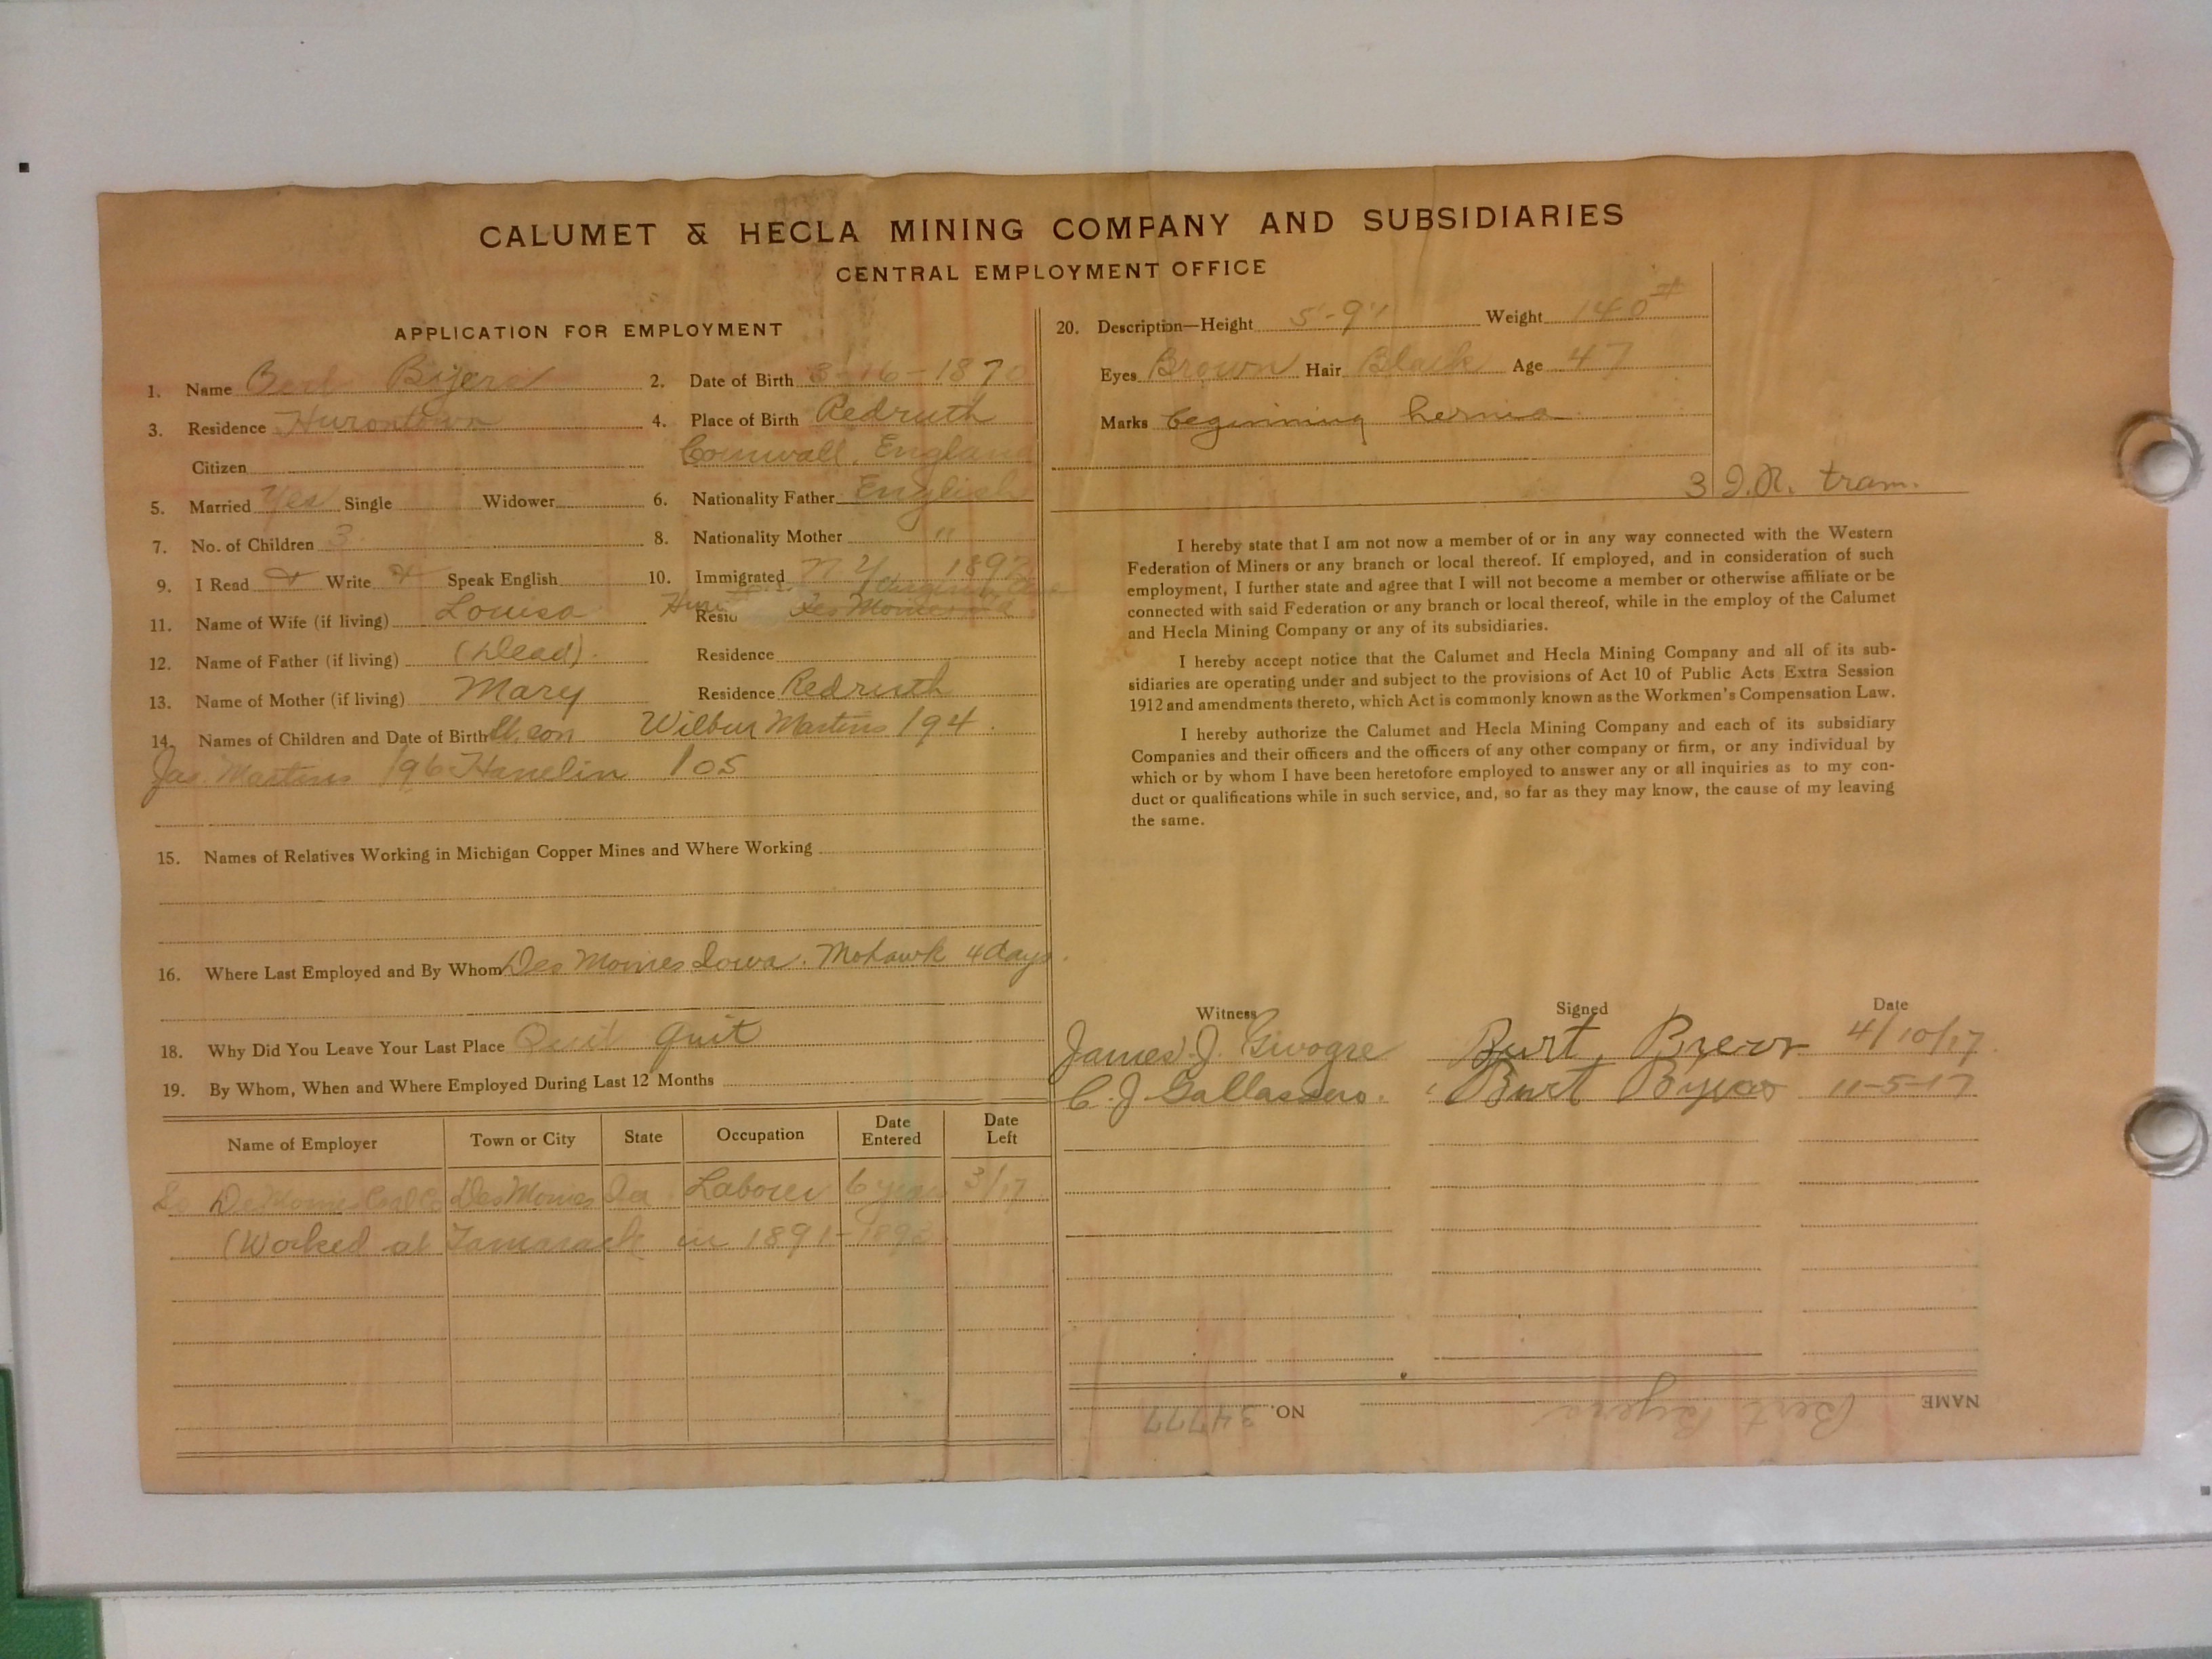 CALUMET & HECLA MINING COMPANY AND SUBSIDIARIES
CENTRAL EMPLOYMENT OFFICE
APPLICATION FOR EMPLOYMENT
1. Name Byers
2. Date of Birth 8-16-1870
3. Residence Hurontown
4. Place of Birth Redruth
Citizen
Cornwall, England
5. Married Yes Single Widower
6. Nationality Father English
7. No. of Children 3
8. Nationality Mother "
9. I Read Write Speak English
10. Immigrated N Y 1892
11. Name of Wife (if living) Louisa
Des Moines
12. Name of Father (if living) (Dead).
Residence
13. Name of Mother (if living) Mary
Residence Redruth
14. Names of Children and Date of Birth Wilbur Martins /94.
Jas. Martins /96 /05
15. Names of Relatives Working in Michigan Copper Mines and Where Working
16. Where Last Employed and By Whom Des Moines Iowa. Mohawk 4 days.
18. Why Did You Leave Your Last Place Quit Quit
19. By Whom, When and Where Employed During Last 12 Months
Name of Employer Town or City State Occupation Date Entered Date Left
Des Moines Coal Co Des Moines Ia Laborer 6 yrs 3/17
(Worked at Tamarack in 1891-1892
20. Description—Height 5'-9" Weight 140#
Eyes Brown Hair Black Age 47
Marks beginning hernia
3 J.R. tram.
I hereby state that I am not now a member of or in any way connected with the Western
Federation of Miners or any branch or local thereof. If employed, and in consideration of such
employment, I further state and agree that I will not become a member or otherwise affiliate or be
connected with said Federation or any branch or local thereof, while in the employ of the Calumet
and Hecla Mining Company or any of its subsidiaries.
I hereby accept notice that the Calumet and Hecla Mining Company and all of its sub-
sidiaries are operating under and subject to the provisions of Act 10 of Public Acts Extra Session
1912 and amendments thereto, which Act is commonly known as the Workmen's Compensation Law.
I hereby authorize the Calumet and Hecla Mining Company and each of its subsidiary
Companies and their officers and the officers of any other company or firm, or any individual by
which or by whom I have been heretofore employed to answer any or all inquiries as to my con-
duct or qualifications while in such service, and, so far as they may know, the cause of my leaving
the same.
Witness Signed Date
James J. Burt 4/10/17
C. J. Burt Byers 11-5-17
NAME Bert Byers NO. 34777